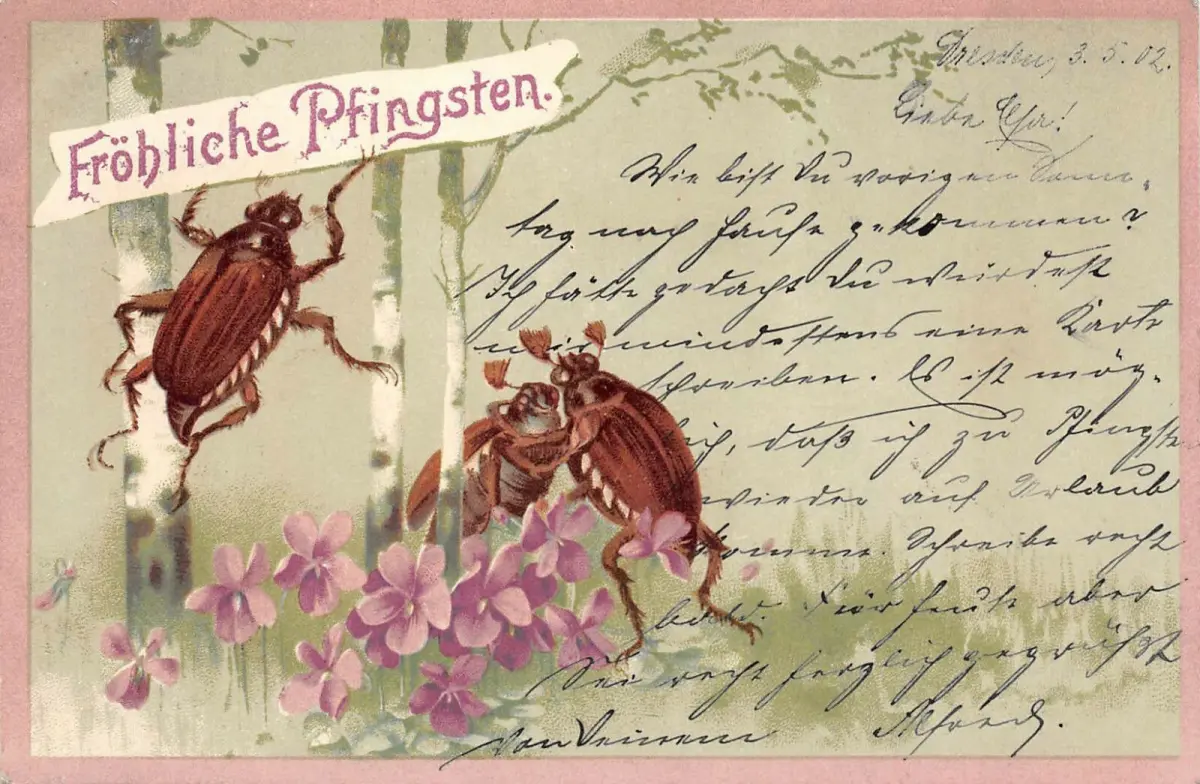 Fröhliche Pfingsten.
Dresden, 3. 5. 02.
Liebe
Wie bist Du vorigen Sonn-
tag nach Hause gekommen?
Ich hätte gedacht Du würdest
mir mindestens eine Karte
schreiben. Es ist mög-
lich, daß ich zu Pfingsten
wieder auf Urlaub
komme. Schreibe recht
bald. Für heute aber
Sei recht herzlich gegrüßt
von Deinem Alfred.